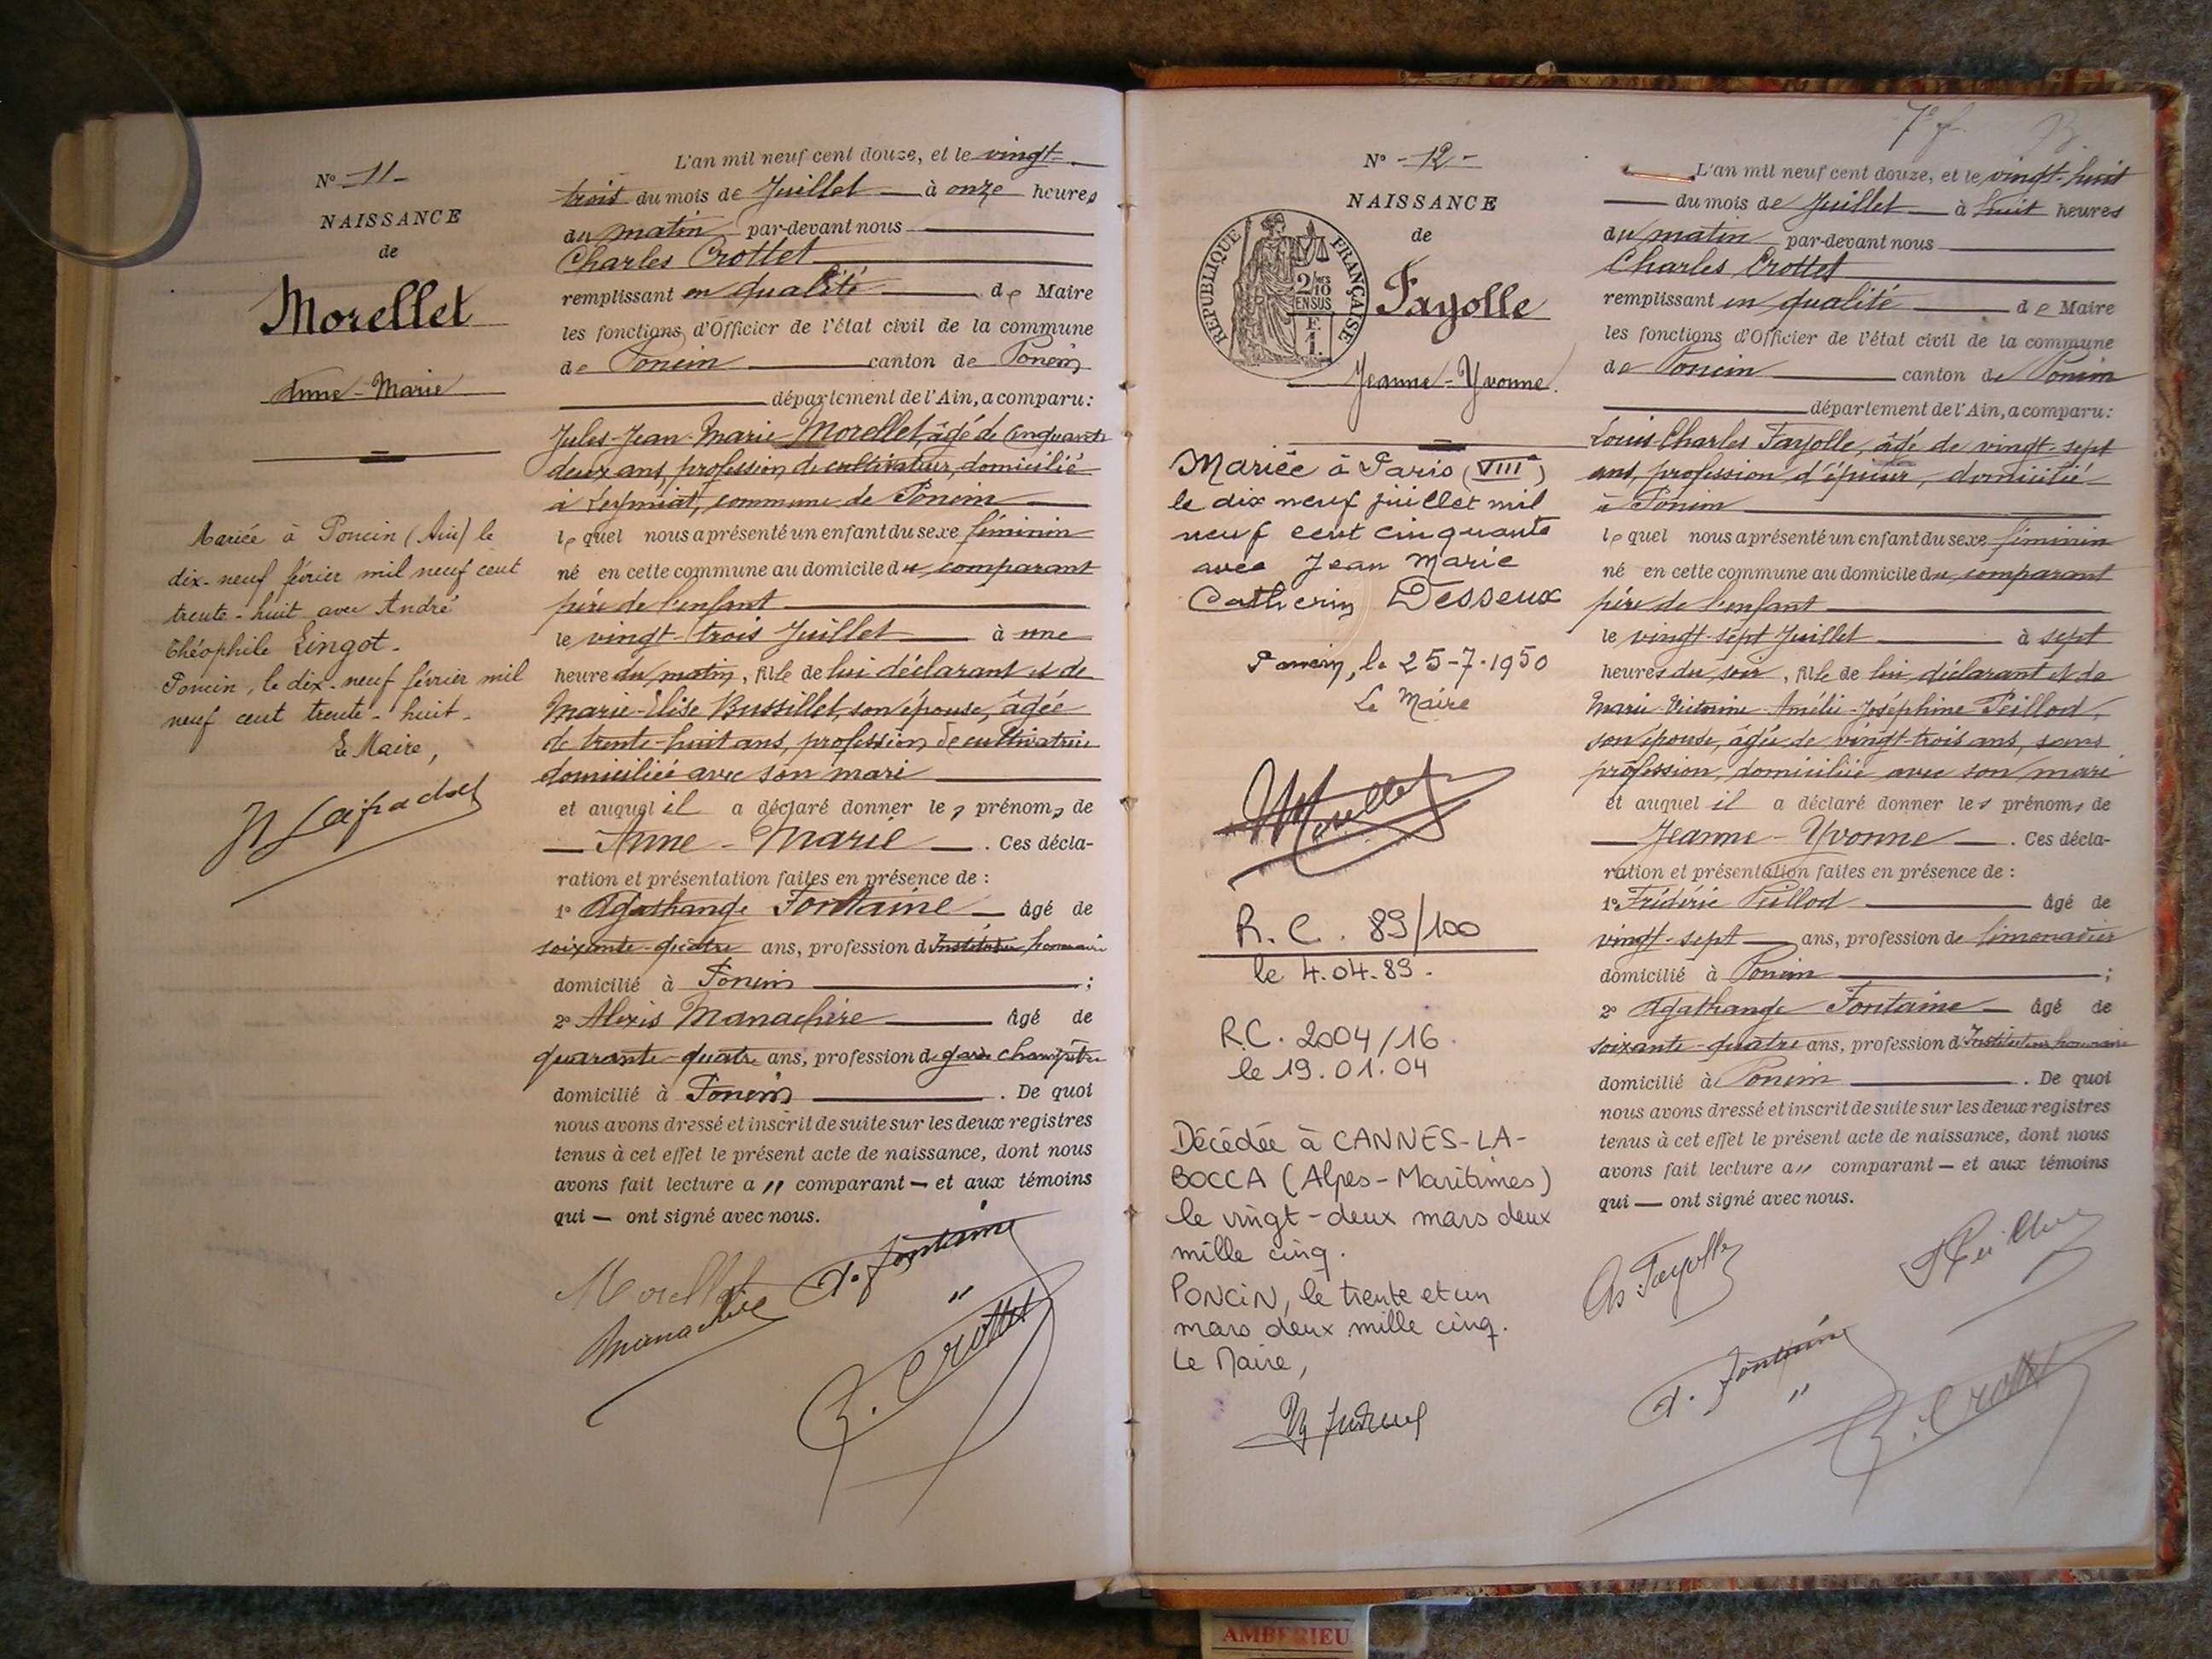 N° 11
NAISSANCE
de
Morellet
Anne-Marie
Mariée à Poncin (Ain) le
dix-neuf février mil neuf cent
trente-huit avec André
Théophile Lingot.
Poncin, le dix-neuf février mil
neuf cent trente-huit.
Le Maire,
L'an mil neuf cent douze, et le vingt-
trois du mois de Juillet à onze heures
du matin par-devant nous
Charles Crottet
remplissant en qualité de Maire
les fonctions d'Officier de l'état civil de la commune
de Poncin canton de Poncin
département de l'Ain, a comparu:
Jules-Jean-Marie Morellet, âgé de cinquante
deux ans, profession de cultivateur, domicilié
à Leymiat, commune de Poncin
lequel nous a présenté un enfant du sexe féminin
né en cette commune au domicile du comparant
père de l'enfant
le vingt-trois Juillet à une
heure du matin, fille de lui déclarant et de
Marie-Elise Bussillet, son épouse, âgée
de trente-huit ans, profession de cultivatrice
domiciliée avec son mari
et auquel il a déclaré donner les prénoms de
Anne-Marie. Ces décla-
ration et présentation faites en présence de :
1° Agathange Fontaine âgé de
soixante-quatre ans, profession d'Instituteur honoraire
domicilié à Poncin ;
2° Alexis Manachire âgé de
quarante-quatre ans, profession de garde champêtre
domicilié à Poncin. De quoi
nous avons dressé et inscrit de suite sur les deux registres
tenus à cet effet le présent acte de naissance, dont nous
avons fait lecture a" comparant — et aux témoins
qui — ont signé avec nous.
Morellet A. Fontaine
Manachire
C. Crottet
N° -12-
NAISSANCE
de
RÉPUBLIQUE FRANÇAISE
2/10 EN SUS
F. 1.
Fayolle
Jeanne-Yvonne.
Mariée à Paris (VIIIe)
le dix neuf juillet mil
neuf cent cinquante
avec Jean Marie
Catherin Desseux
Poncin, le 25-7-1950
Le Maire
Morellet
R.C. 89/100
le 4.04.89.
R.C. 2004/16
le 19.01.04
Décédée à CANNES-LA-
BOCCA (Alpes-Maritimes)
le vingt-deux mars deux
mille cinq.
PONCIN, le trente et un
mars deux mille cinq.
Le Maire,
L'an mil neuf cent douze, et le vingt-huit
du mois de Juillet à huit heures
du matin par-devant nous
Charles Crottet
remplissant en qualité de Maire
les fonctions d'Officier de l'état civil de la commune
de Poncin canton de Poncin
département de l'Ain, a comparu:
Louis-Charles Fayolle, âgé de vingt-sept
ans, profession d'épicier, domicilié
à Poncin
lequel nous a présenté un enfant du sexe féminin
né en cette commune au domicile du comparant
père de l'enfant
le vingt-sept Juillet à sept
heures du soir, fille de lui déclarant et de
Marie-Victorine-Amélie-Joséphine Peillod,
son épouse, âgée de vingt-trois ans, sans
profession, domiciliée avec son mari
et auquel il a déclaré donner les prénoms de
Jeanne-Yvonne. Ces décla-
ration et présentation faites en présence de :
1° Frédéric Peillod âgé de
vingt-sept ans, profession de limonadier
domicilié à Poncin ;
2° Agathange Fontaine âgé de
soixante-quatre ans, profession d'Instituteur honoraire
domicilié à Poncin. De quoi
nous avons dressé et inscrit de suite sur les deux registres
tenus à cet effet le présent acte de naissance, dont nous
avons fait lecture a" comparant — et aux témoins
qui — ont signé avec nous.
Chs Fayolle
A. Fontaine
C. Crottet
AMBERIEU